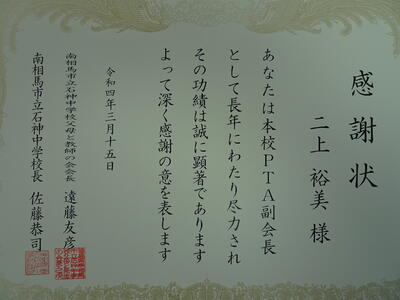 感謝状
二上裕美様
あなたは本校PTA副会長
として長年にわたり尽力され
その功績は誠に顕著であります
よって深く感謝の意を表します
令和四年三月十五日
南相馬市立石神中学校父母と教師の会会長 遠藤友彦
南相馬市立石神中学校長 佐藤恭司